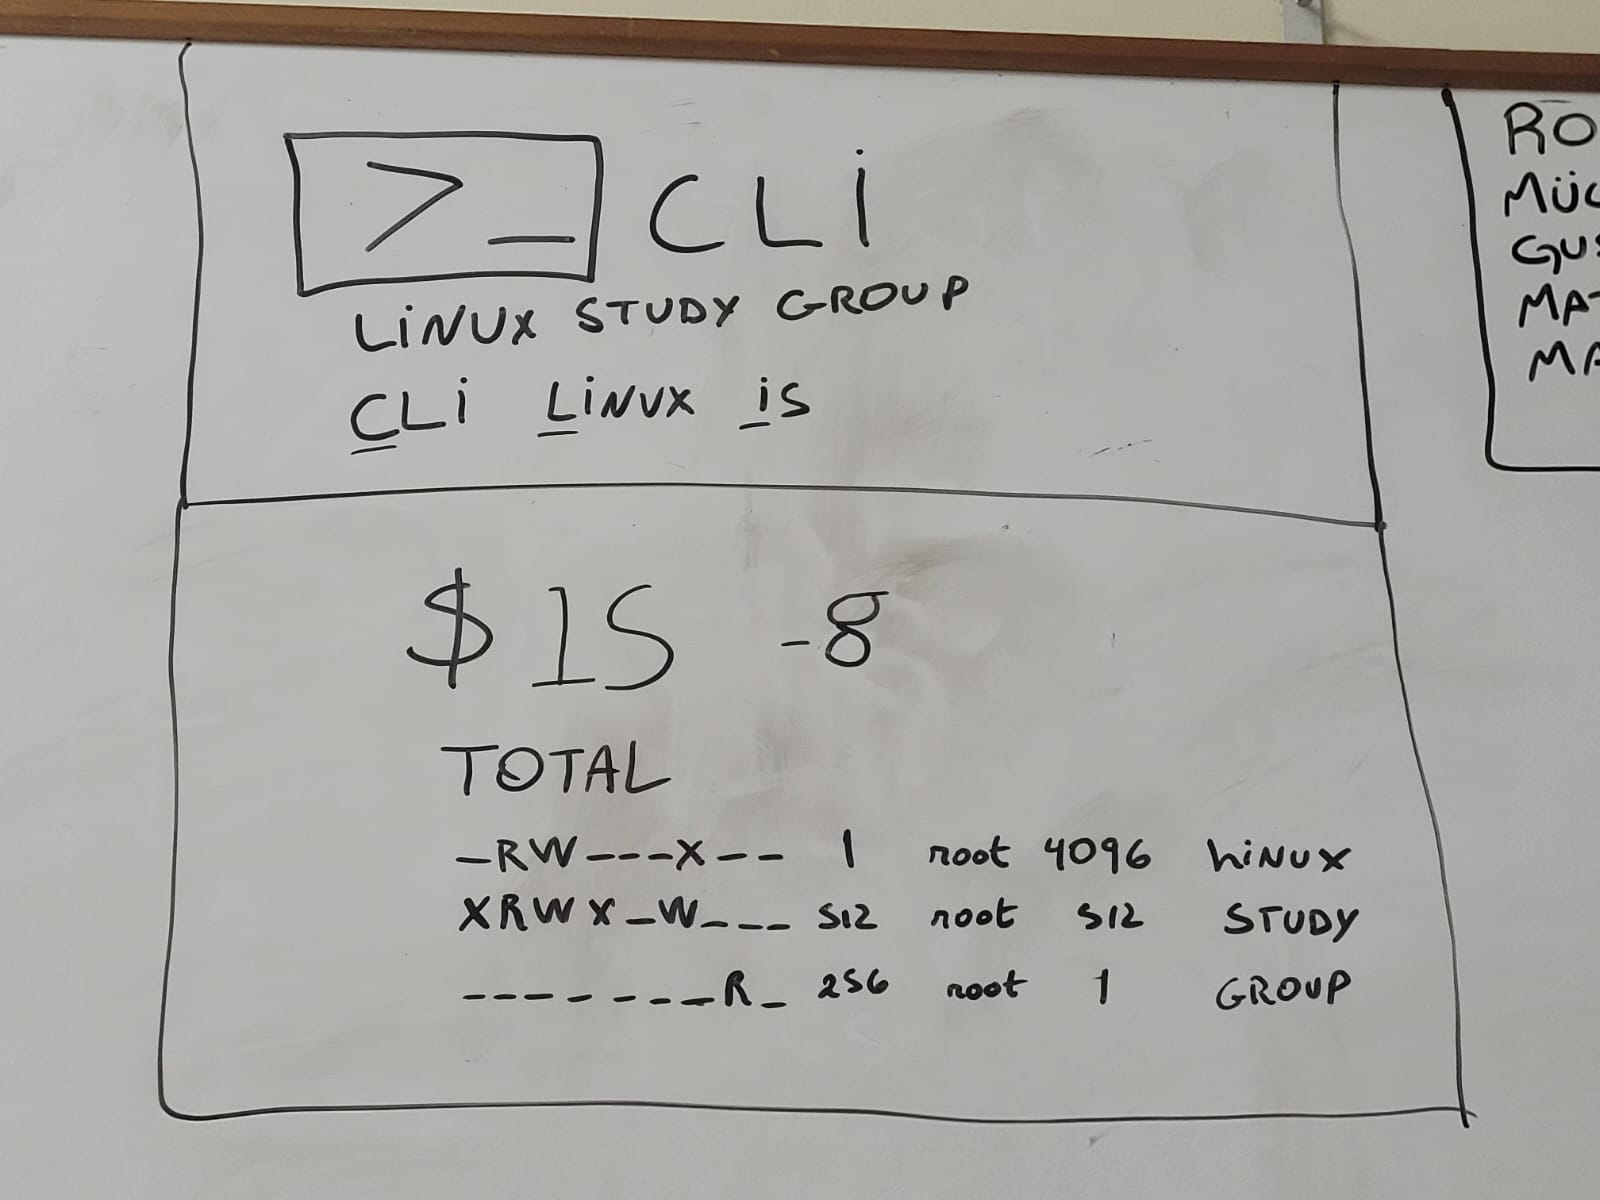 >_ CLi
LiNUX STUDY GROUP
CLi LiNUX iS
$ 1S -8
TOTAL
-RW---X-- 1 root 4096 LiNUX
XRWX-W--- S12 root S12 STUDY
--------R- 256 root 1 GROUP
RO
MÜC
GUS
MAT
MA